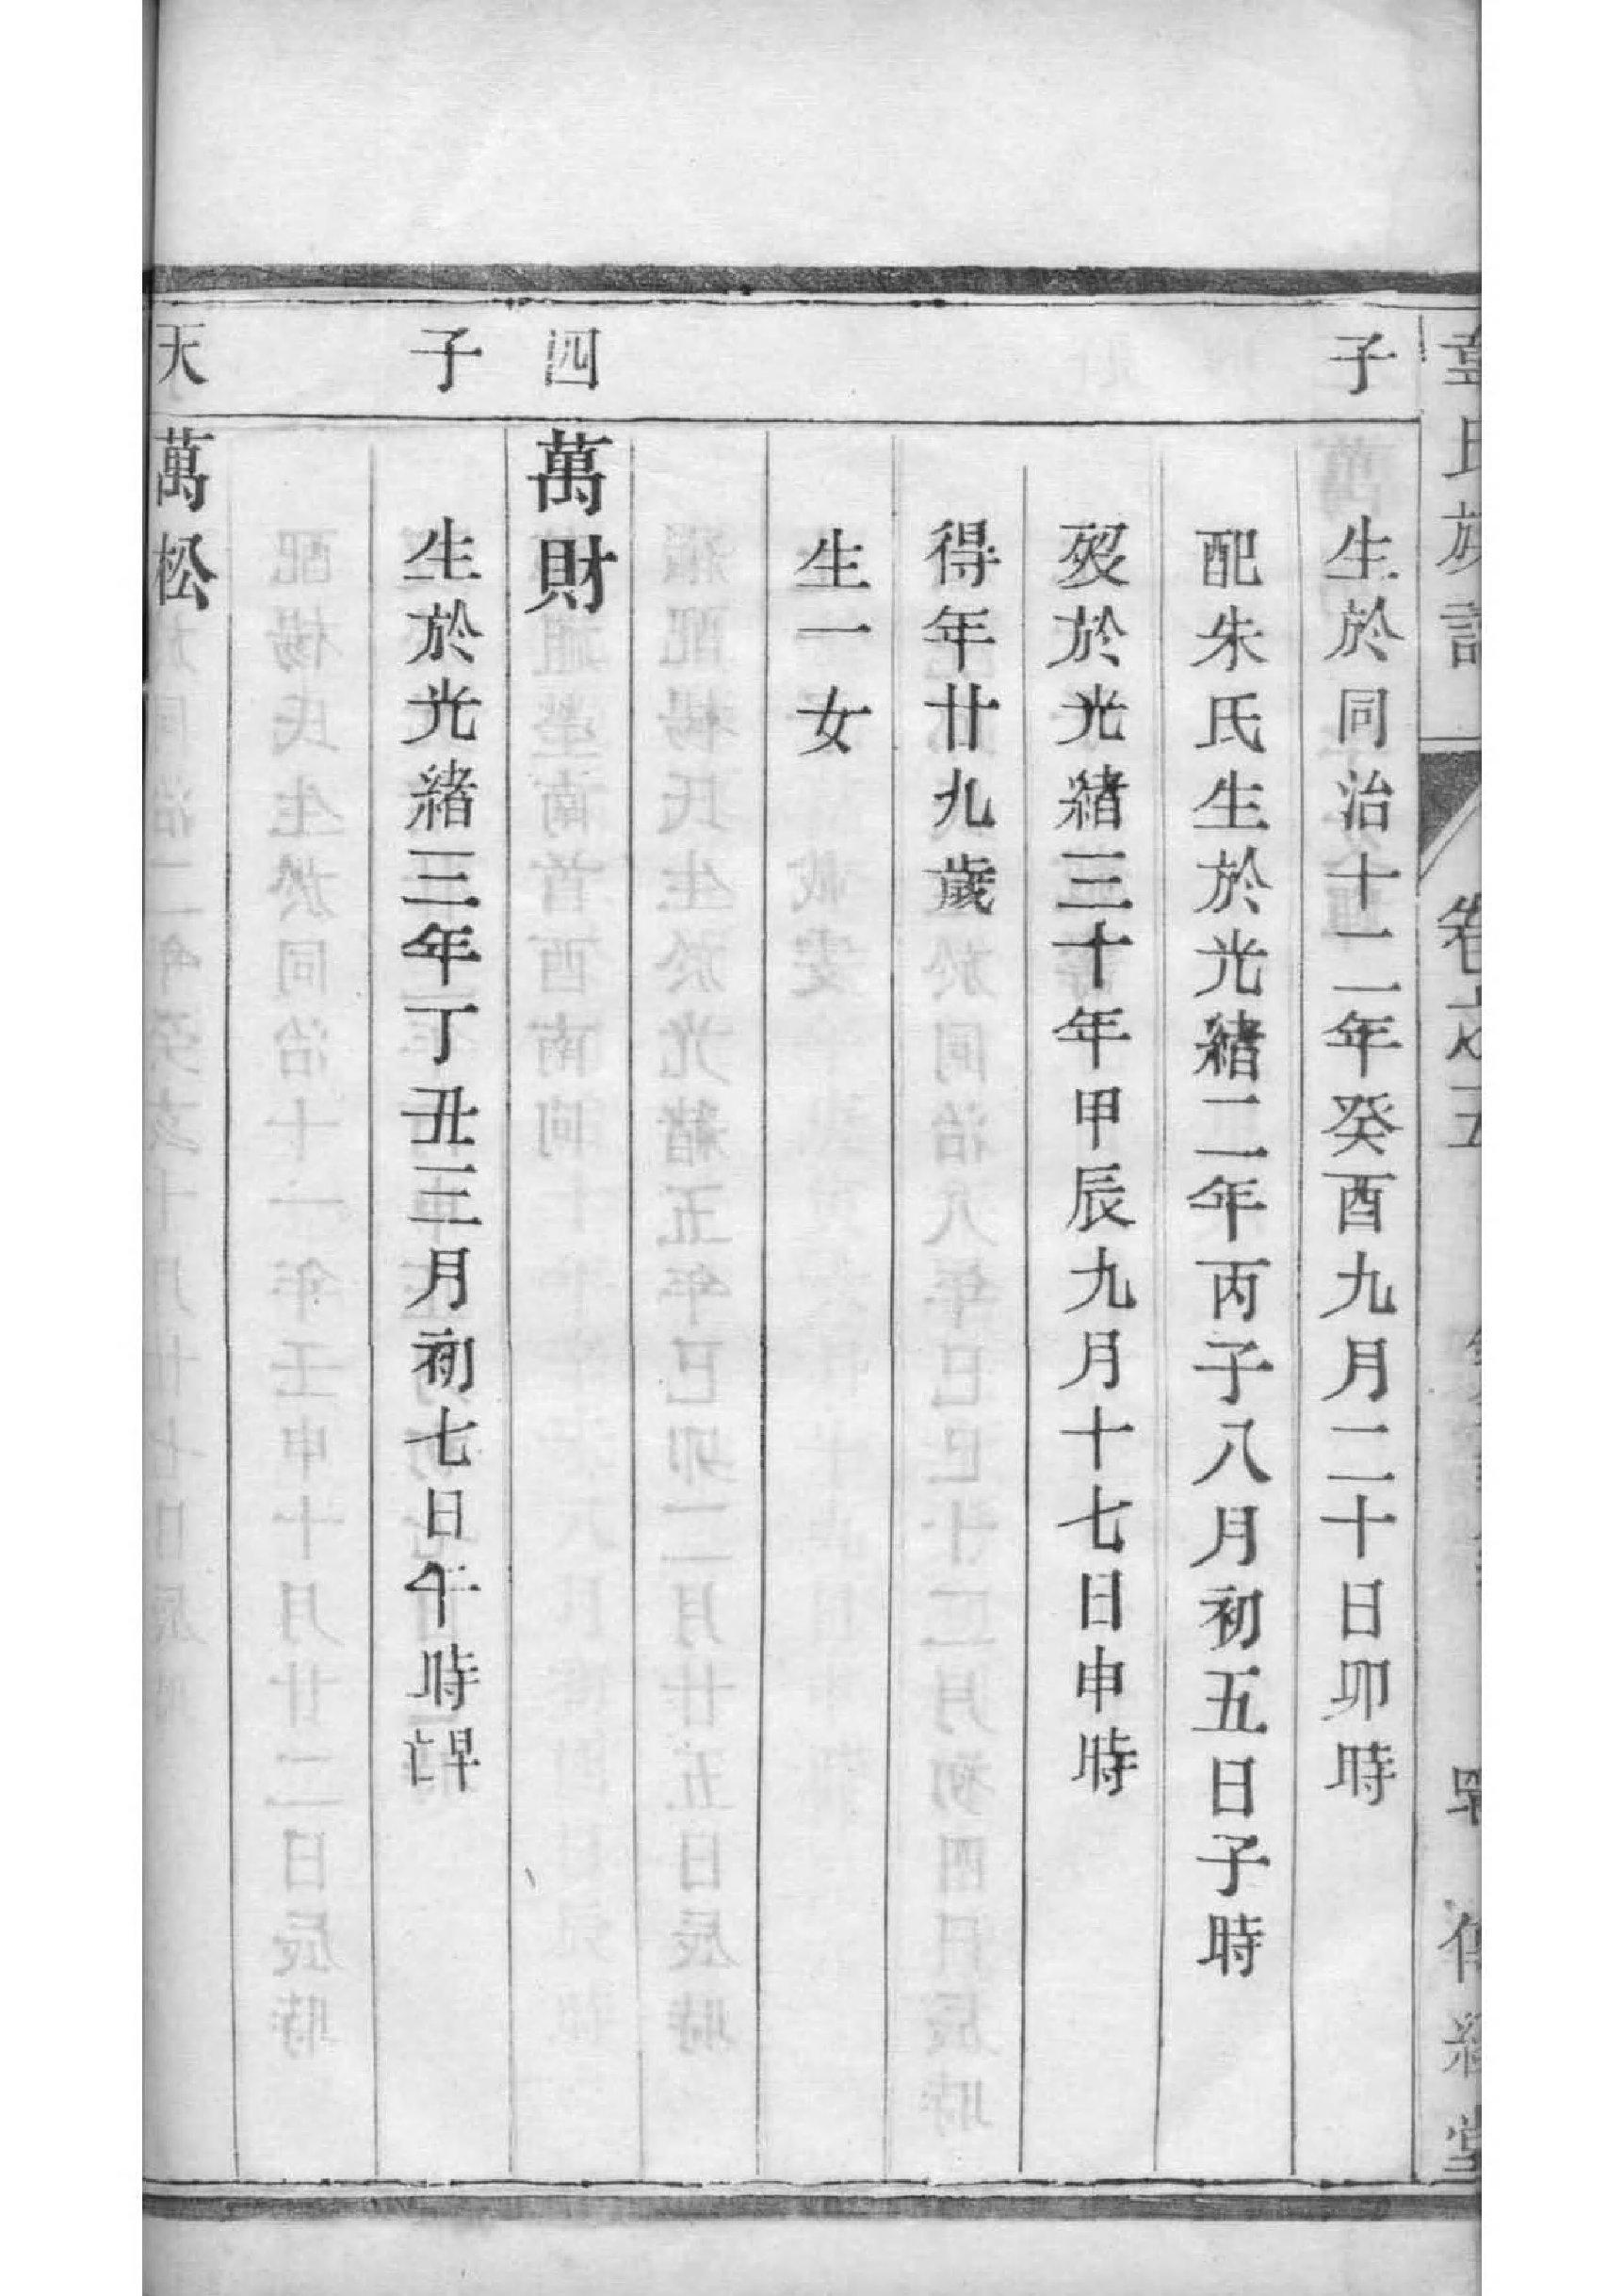 氏族譜 卷之五
子
生於同治十二年癸酉九月二十日卯時
配朱氏生於光緒二年丙子八月初五日子時
歿於光緒三十年甲辰九月十七日申時
得年廿九歲
生一女
四 萬財
子
生於光緒三年丁丑三月初七日午時
天 萬松